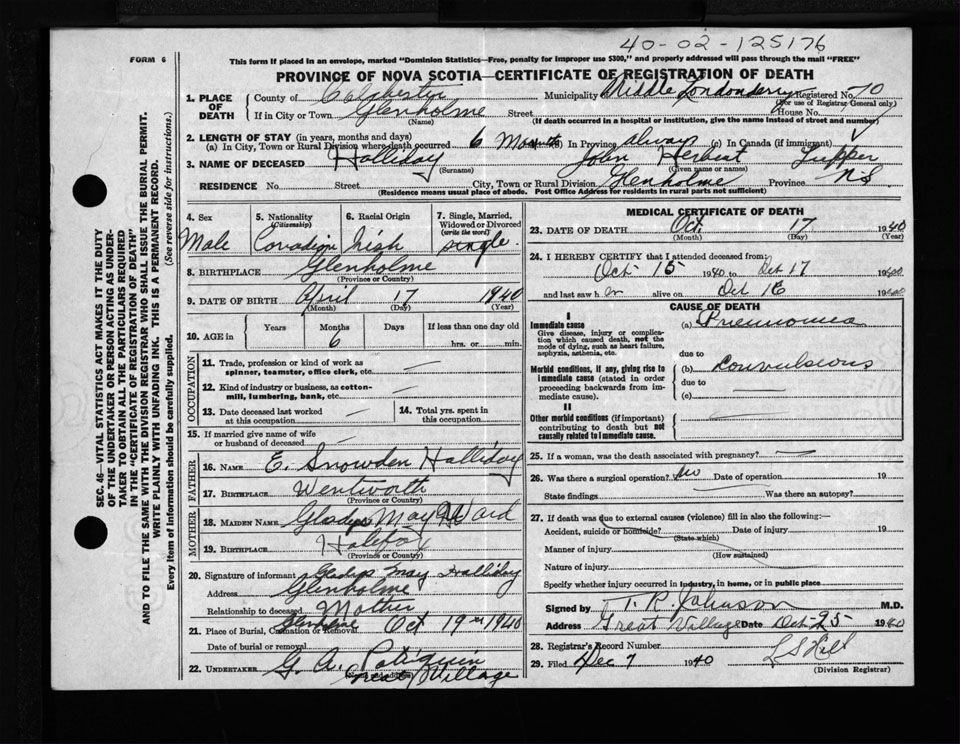 40-02-125176
FORM 6
This form if placed in an envelope, marked "Dominion Statistics—Free, penalty for improper use $300," and properly addressed will pass through the mail "FREE"
PROVINCE OF NOVA SCOTIA—CERTIFICATE OF REGISTRATION OF DEATH
1. PLACE OF DEATH County of Colchester Municipality Middle Londonderry Registered No. 70
(For use of Registrar General only)
If in City or Town Glenholme Street House No.
(Name) (If death occurred in a hospital or institution, give the name instead of street and number)
2. LENGTH OF STAY (in years, months and days)
(a) In City, Town or Rural Division where death occurred 6 Months In Province always (c) In Canada (if immigrant)
3. NAME OF DECEASED Halliday John Herbert Tupper
(Surname) (Given name or names)
RESIDENCE No. Street City, Town or Rural Division Glenholme Province N.S
(Residence means usual place of abode. Post Office Address for residents in rural parts not sufficient)
4. Sex Male
5. Nationality (Citizenship) Canadian
6. Racial Origin Irish
7. Single, Married, Widowed or Divorced (write the word) single
8. BIRTHPLACE Glenholme
(Province or Country)
9. DATE OF BIRTH April 17 1940
(Month) (Day) (Year)
10. AGE in Years Months Days If less than one day old
6 hrs. or min.
OCCUPATION
11. Trade, profession or kind of work as spinner, teamster, office clerk, etc. —
12. Kind of industry or business, as cotton-mill, lumbering, bank, etc. —
13. Date deceased last worked at this occupation —
14. Total yrs. spent in this occupation
15. If married give name of wife or husband of deceased —
FATHER
16. NAME E. Snowden Halliday
17. BIRTHPLACE Wentworth
(Province or Country)
MOTHER
18. MAIDEN NAME Gladys May Ward
19. BIRTHPLACE Halifax
(Province or Country)
20. Signature of informant Gladys May Halliday
Address Glenholme
Relationship to deceased Mother
21. Place of Burial, Cremation or Removal Glenholme Oct 19th 1940
Date of burial or removal
22. UNDERTAKER G. A.
(Name and address) Great Village
MEDICAL CERTIFICATE OF DEATH
23. DATE OF DEATH Oct. 17 1940
(Month) (Day)
24. I HEREBY CERTIFY that I attended deceased from:
Oct 15 1940 to Oct 17 1940
and last saw h im alive on Oct 16 1940
CAUSE OF DEATH
I
Immediate cause
Give disease, injury or complication which caused death, not the mode of dying, such as heart failure, asphyxia, asthenia, etc.
(a) Pneumonia
due to
Morbid conditions, if any, giving rise to immediate cause (stated in order proceeding backwards from immediate cause).
(b) Convulsions
due to
(c) —
II
Other morbid conditions (if important) contributing to death but not causally related to immediate cause.
25. If a woman, was the death associated with pregnancy? —
26. Was there a surgical operation? No Date of operation 19
State findings Was there an autopsy?
27. If death was due to external causes (violence) fill in also the following:—
Accident, suicide or homicide? Date of injury 19
(State which)
Manner of injury
(How sustained)
Nature of injury
Specify whether injury occurred in industry, in home, or in public place
Signed by T. R. Johnson M.D.
Address Great Village Date Oct 25 1940
28. Registrar's Record Number
29. Filed Dec 7 1940 L S Hill
(Division Registrar)
SEC. 46—VITAL STATISTICS ACT MAKES IT THE DUTY
OF THE UNDERTAKER OR PERSON ACTING AS UNDER-
TAKER TO OBTAIN ALL THE PARTICULARS REQUIRED
IN THE "CERTIFICATE OF REGISTRATION OF DEATH"
AND TO FILE THE SAME WITH THE DIVISION REGISTRAR WHO SHALL ISSUE THE BURIAL PERMIT.
WRITE PLAINLY WITH UNFADING INK. THIS IS A PERMANENT RECORD.
Every item of information should be carefully supplied. (See reverse side for instructions.)